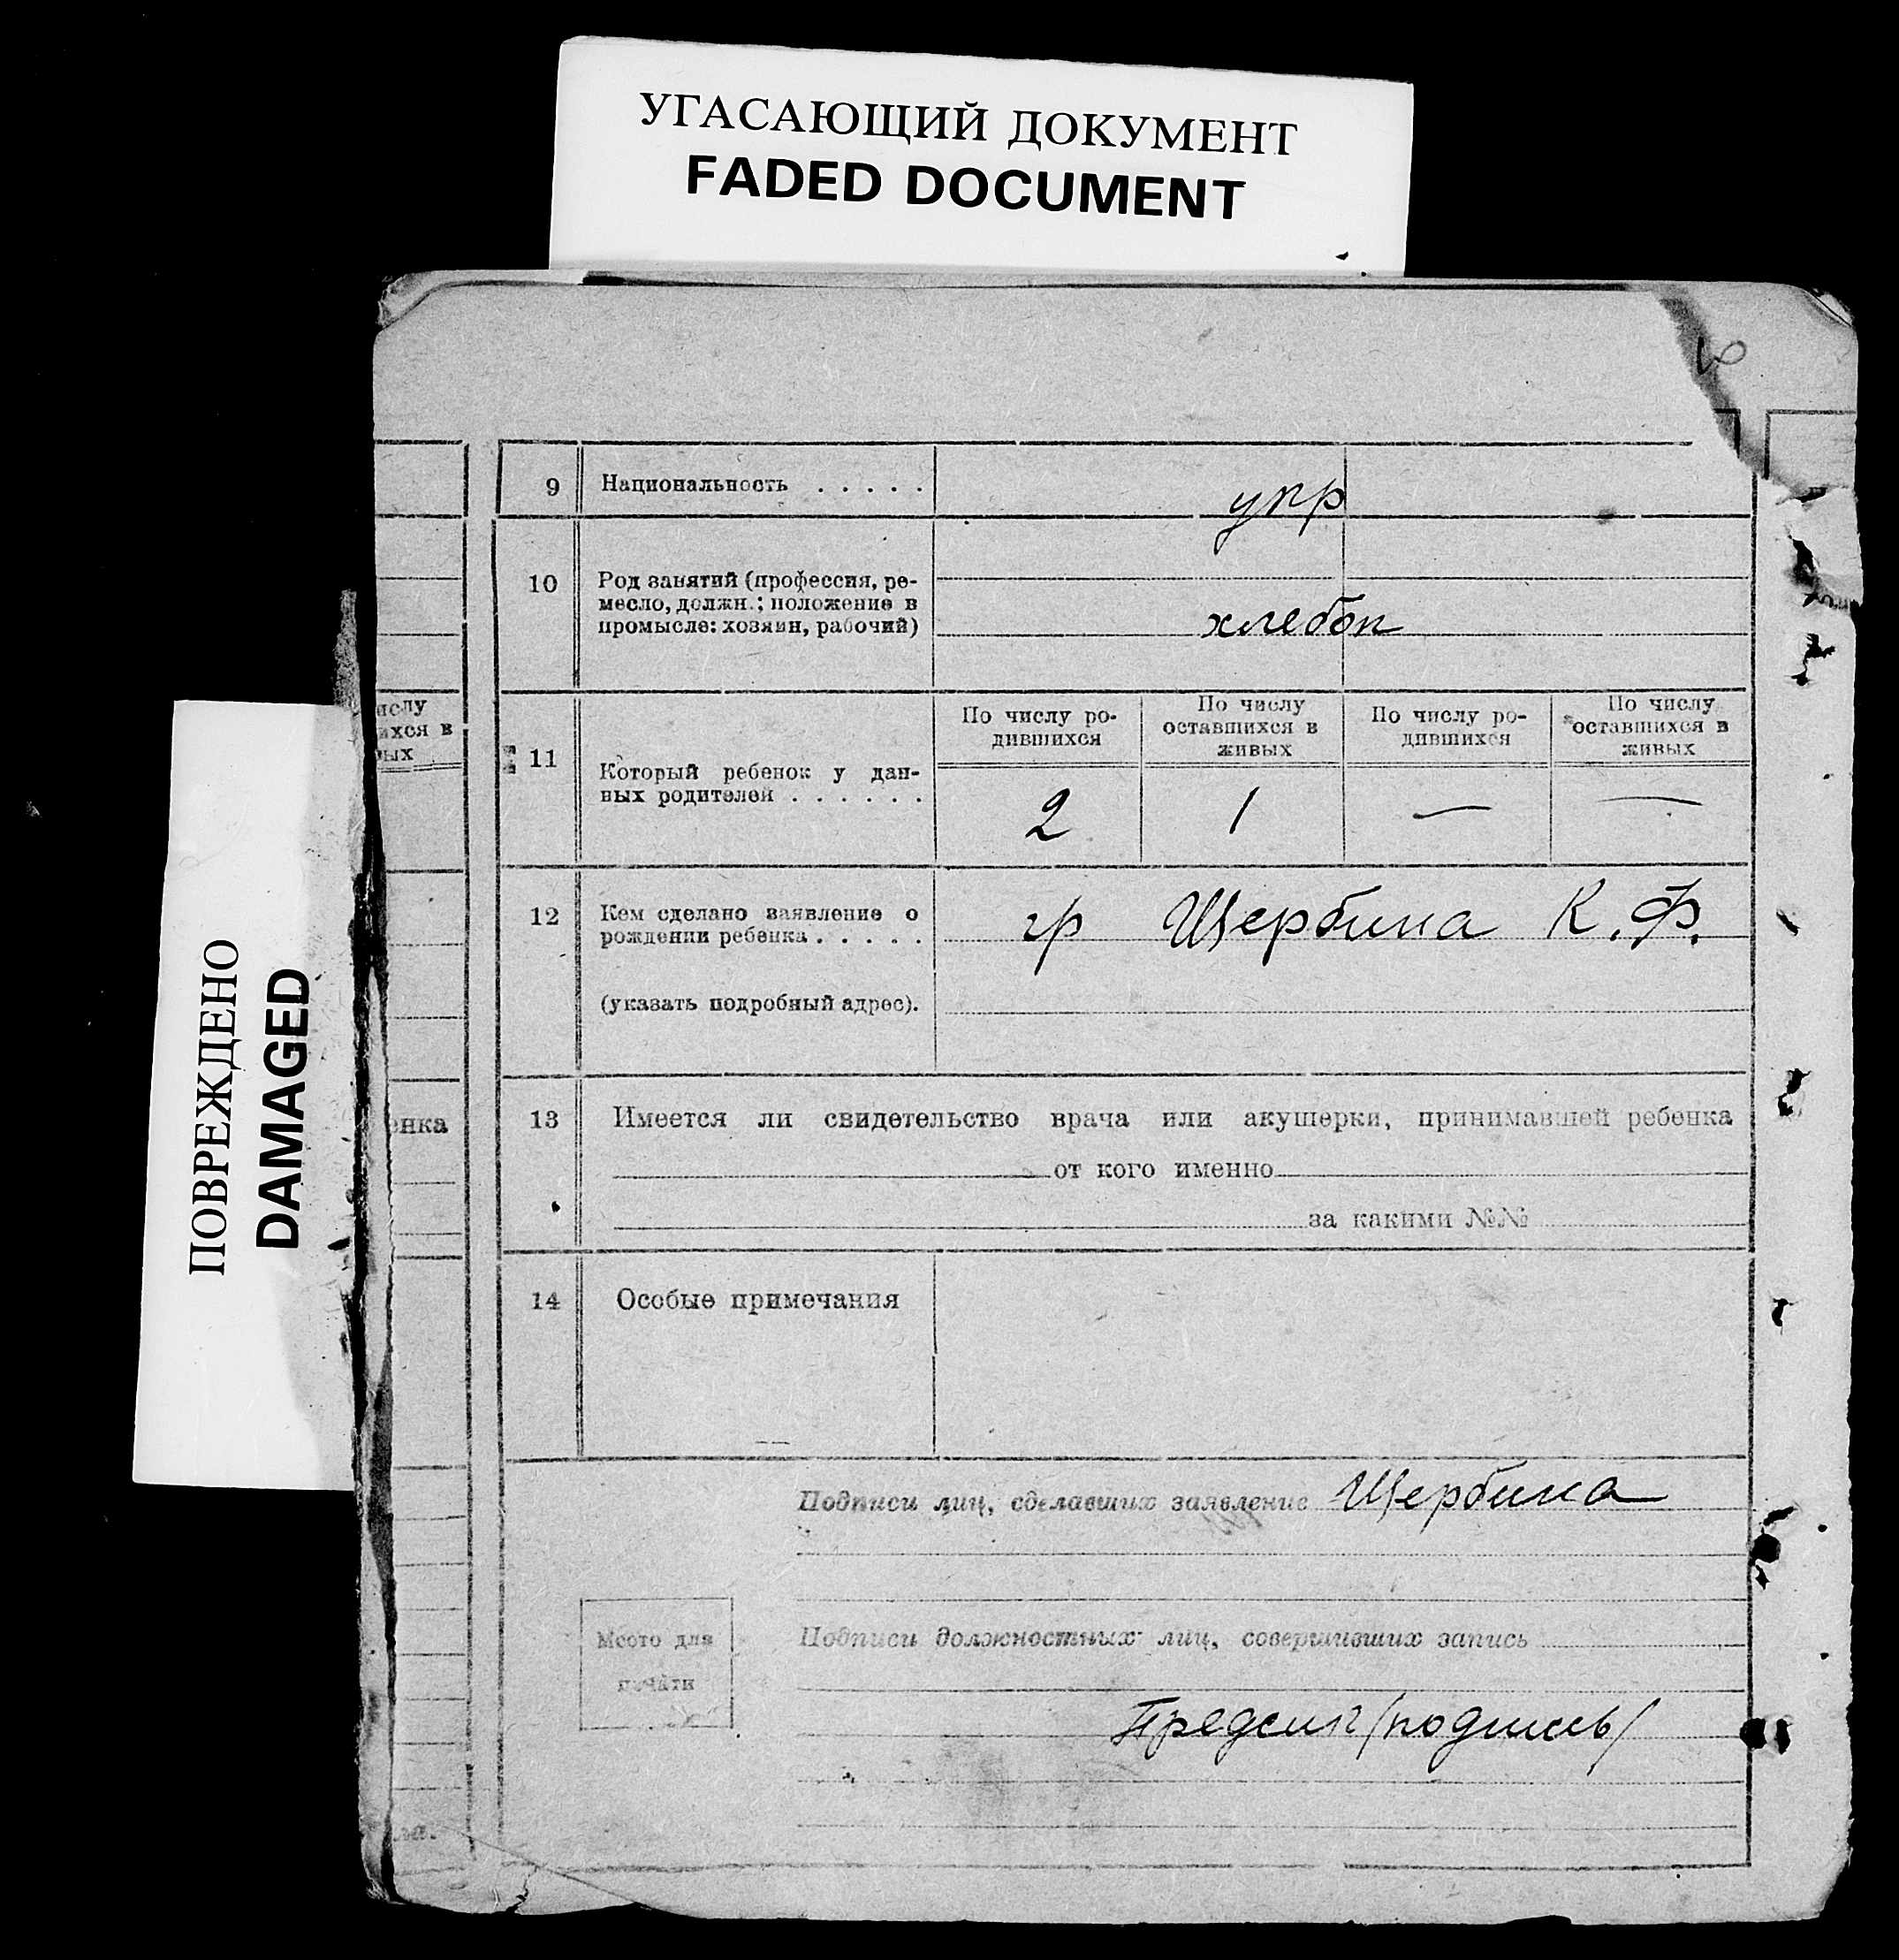 УГАСАЮЩИЙ ДОКУМЕНТ
FADED DOCUMENT
ПОВРЕЖДЕНО
DAMAGED
9 Национальность . . . . . укр
10 Род занятий (профессия, ре-
месло, должн.; положение в
промысле: хозяин, рабочий)
хлебоп
ислу
ихся в
ых
11 Который ребенок у дан-
ных родителей . . . . . .
По числу ро-
дившихся
По числу
оставшихся в
живых
По числу ро-
дившихся
По числу
оставшихся в
живых
2 1 — —
12 Кем сделано заявление о
рождении ребенка . . . . .
(указать подробный адрес).
гр Щербина К. Ф.
енка
13 Имеется ли свидетельство врача или акушерки, принимавшей ребенка
от кого именно
за какими №№
14 Особые примечания
Подписи лиц, сделавших заявление Щербина
Место для
печати
Подписи должностных лиц, совершивших запись
/подпись/